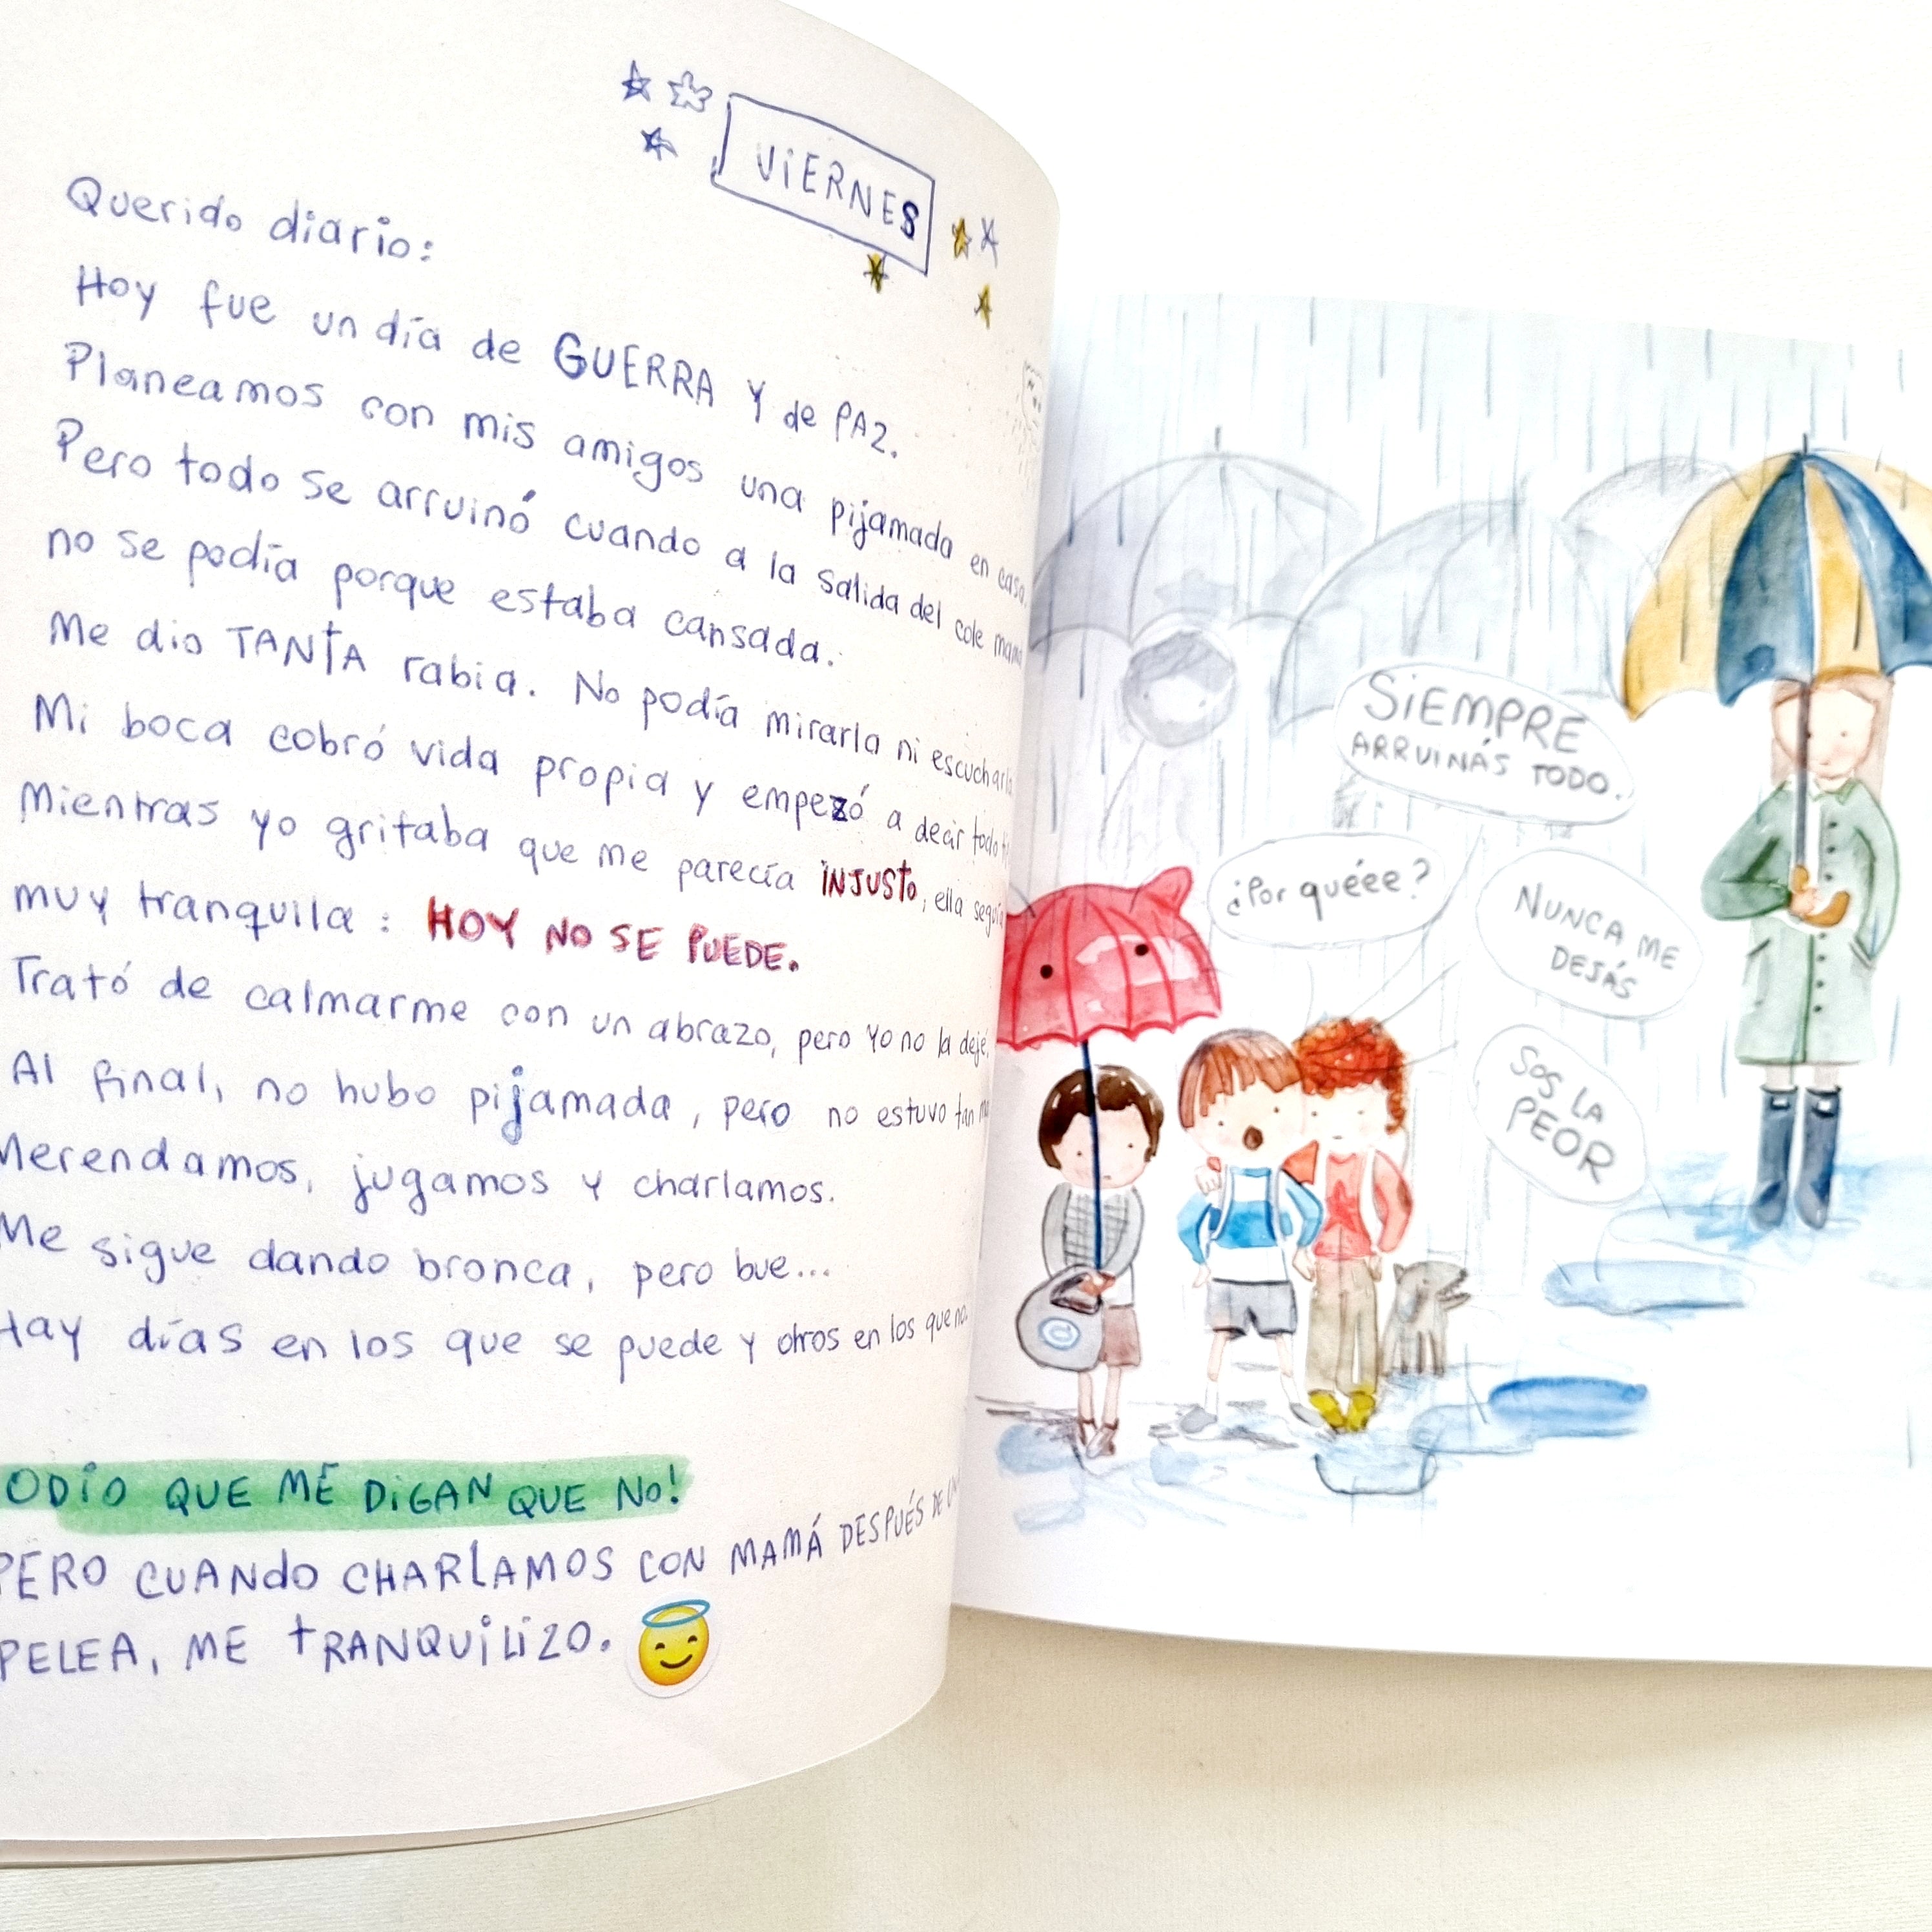 VIERNES
Querido diario:
Hoy fue un día de GUERRA Y de PAZ.
Planeamos con mis amigos una pijamada en casa.
Pero todo se arruinó cuando a la salida del cole mamá
no se podía porque estaba cansada.
Me dio TANTA rabia. No podía mirarla ni escucharla
Mi boca cobró vida propia y empezó a decir todo
Mientras yo gritaba que me parecía INJUSTO, ella seguía
muy tranquila: HOY NO SE PUEDE.
Trató de calmarme con un abrazo, pero yo no la dejé.
Al final, no hubo pijamada, pero no estuvo tan
Merendamos, jugamos y charlamos.
Me sigue dando bronca, pero bue...
Hay días en los que se puede y otros en los que no.
ODIO QUE ME DIGAN QUE NO!
PERO CUANDO CHARLAMOS CON MAMÁ DESPUÉS DE
PELEA, ME TRANQUILIZO.
SIEMPRE
ARRUINÁS TODO.
¿Por quéee?
NUNCA ME
DEJÁS
SOS LA
PEOR